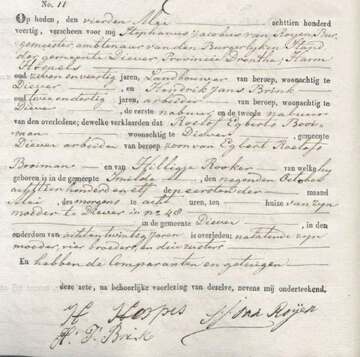 No. 11
Op heden, den vierden Mei achttien honderd
veertig, verscheen voor mij Stephanus Jacobus van Royen Bur-
gemeester ambtenaar van den Burgerlijken Stand
der gemeente Diever Provincie Drenthe, Harm
oud zeven en veertig jaren, Landbouwer van beroep, woonachtig te
Diever en Hendrik Jans Brink
oud twee endertig jaren, arbeider van beroep, woonachtig te
Diever, de eerste nabuur en de tweede nabuur
van den overledene; dewelke verklaarden dat Roelof Egberts Booi-
man woonachtig te Diever, gemeente
Diever arbeider van beroep zoon van Egbert Roelofs
Booiman en van Hilligje Roelfs van welke hij
geboren is in de gemeente Smilde, den negenden October
achttien honderd en elf den eersten der maand
Mei, des morgens te acht uren, ten huize van zijn
moeder te Diever in no 48
in de gemeente Diever, in den
ouderdom van achtentwintig jaren is overleden; nalatende zijn
moeder, vier broeders, en drie zusters
En hebben de Comparanten en getuigen
deze acte, na behoorlijke voorlezing van dezelve, nevens mij onderteekend.
H Hospes SJ van Royen
H. J. Brink